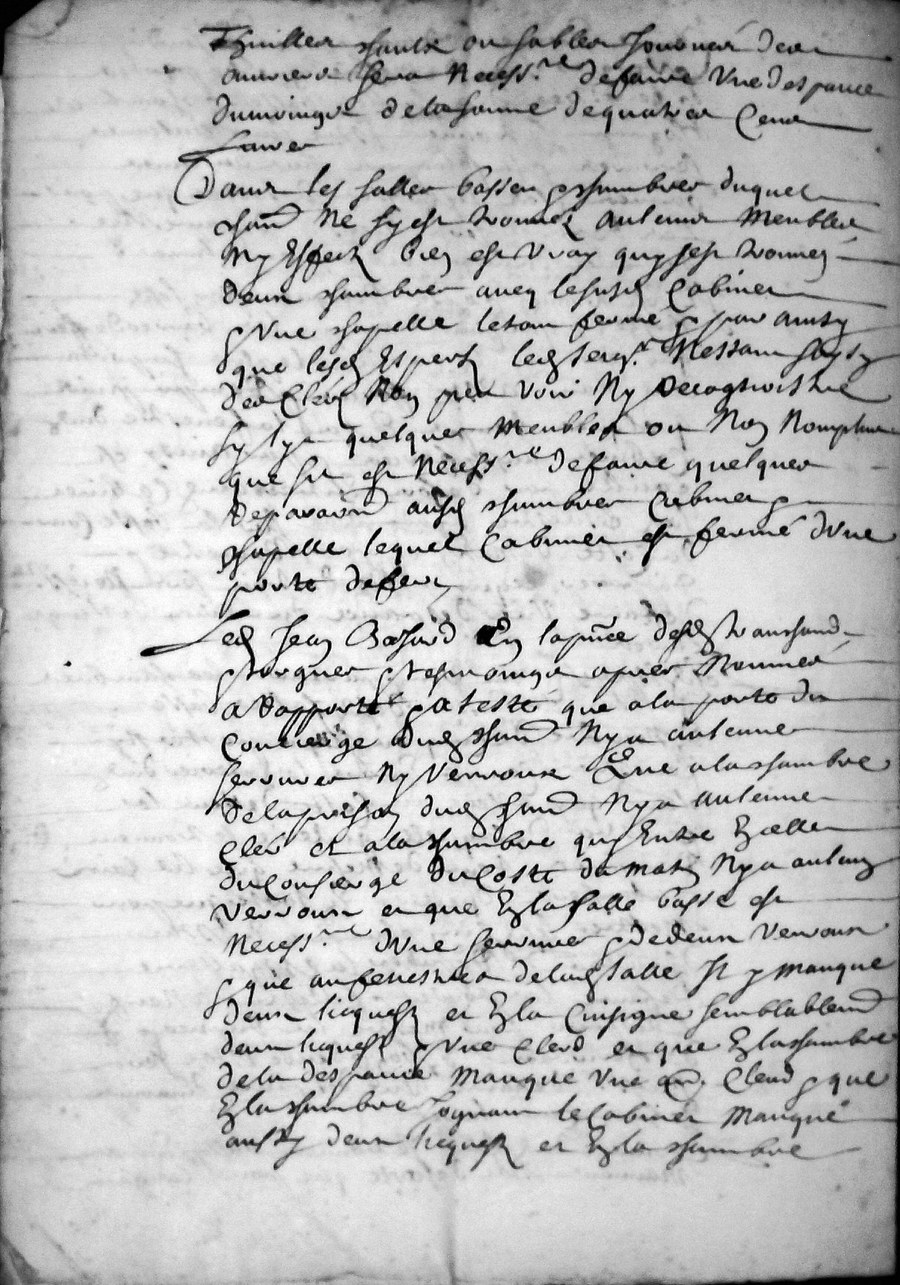 Thuilles chaulx ou sables Journées des
ouvriers sera necess.re de faire une despance
du moingz de la somme de quatre Cens
Livres
Dans les salles basses & chambres duquel
chau ne sy est trouvez aulcuns meubles
ny effectz bien est vray quy sest trouvez
deux chambres avecq lesusd Cabinet
& une chapelle le tout fermé & par ainsy
que lesd Expertz led serg.r nestant saisy
des Clefz Nont peu voir Ny Recognoistre
sy ly a quelques meubles ou Non Nomplus
que sil est necess.re de faire quelques
Reparaons ausd chambres Cabinet &
chapelle lequel Cabinet est fermé dune
porte de fer
Led Jean en la pnce desd
& tesmoingz apres serment
a Rapporté & atesté que a la porte du
Concierge dud chau Ny a aulcune
serrures Ny verroux Que a la chambre
de la prison dud chau Ny a aulcune
Clef et a la chambre quy Entre En celle
du Concierge du Costé du matin Ny a aulcung
verroux et que En la salle basse est
necess.re dune serrures & de deux verroux
& que au fenestres de lad salle Il y manque
deux licquetz et En la Cuisigne semblablemt
deux liquetz & une Clef et que En la chambre
de la despance manque une Clef & que
En la chambre Joignant le Cabinet manque
aussy deux licquetz et En la chambre